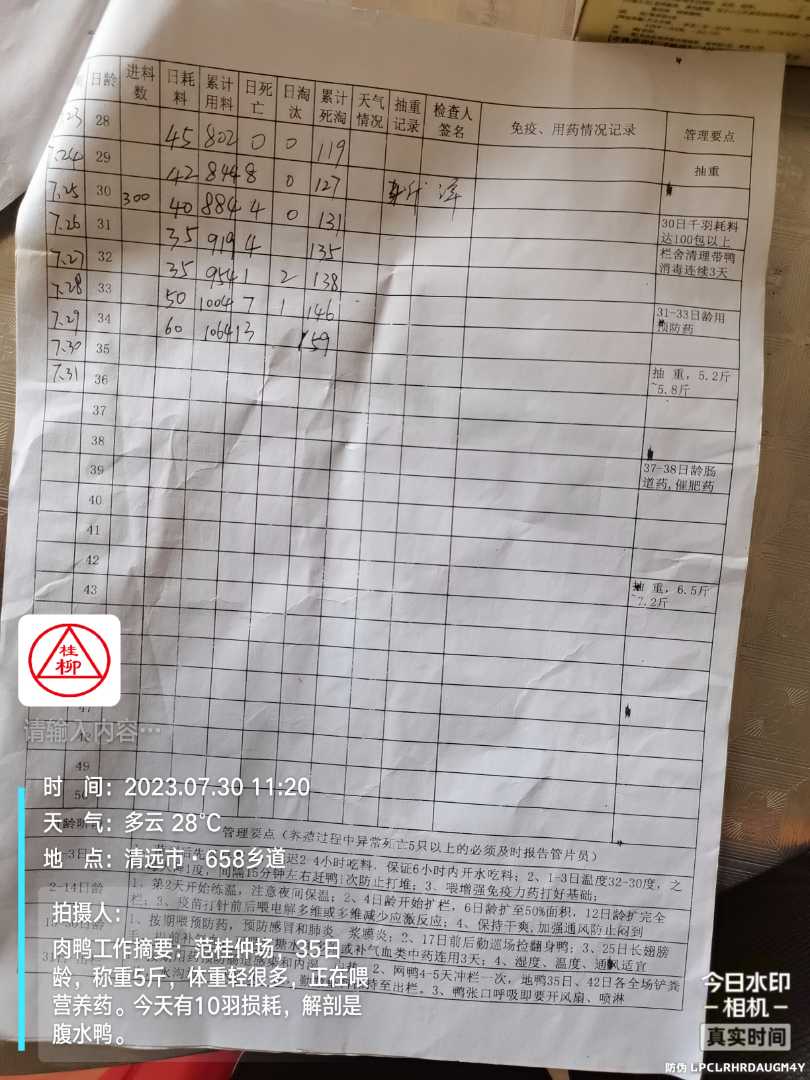 日龄 进料数 日耗料 累计用料 日死亡 日淘汰 累计死淘 天气情况 抽重记录 检查人签名 免疫、用药情况记录 管理要点
28 45 802 0 0 119
7.24 29 42 844 8 0 127 抽重
7.25 30 300 40 884 4 0 131
7.26 31 35 919 4 135 30日千羽耗料达100包以上
7.27 32 35 954 1 2 138 栏舍清理带鸭消毒连续3天
7.28 33 50 1004 7 1 146
7.29 34 60 1064 13 159 31-33日龄用预防药
7.30 35
7.31 36 抽 重，5.2斤~5.8斤
37
38
39 37-38日龄肠道药,催肥药
40
41
42
43 抽 重，6.5斤~7.2斤
47
49
管理要点（养殖过程中异常死亡5只以上的必须及时报告管片员）
迟2-4小时吃料，保证6小时内开水吃料；2、1-3日温度32-30度，之
间隔15分钟左右赶鸭1次防止打堆；3、喂增强免疫力药打好基础；
2-14日龄
1、第2天开始练温，注意夜间保温；2、4日龄开始扩栏，6日龄扩至50%面积，12日龄扩完全
栏；3、疫苗打针前后喂电解多维或多维减少应激反应；4、保持干爽,加强通风防止闷到
1、按期喂预防药，预防感冒和肺炎、浆膜炎；2、17日前后勤巡场捡翻身鸭；3、25日长翅膀
或补气血类中药连用3天；4、湿度、温度、通风适宜
2、网鸭4-5天冲栏一次，地鸭35日、42日各全场铲粪
至出栏。3、鸭张口呼吸即要开风扇、喷淋
桂柳
请输入内容…
时 间：2023.07.30 11:20
天 气：多云 28℃
地 点：清远市·658乡道
拍摄人：
肉鸭工作摘要：范桂仲场、35日
龄，称重5斤，体重轻很多，正在喂
营养药。今天有10羽损耗，解剖是
腹水鸭。
今日水印
-相机-
真实时间
防伪 LPCLRHRDAUGM4Y